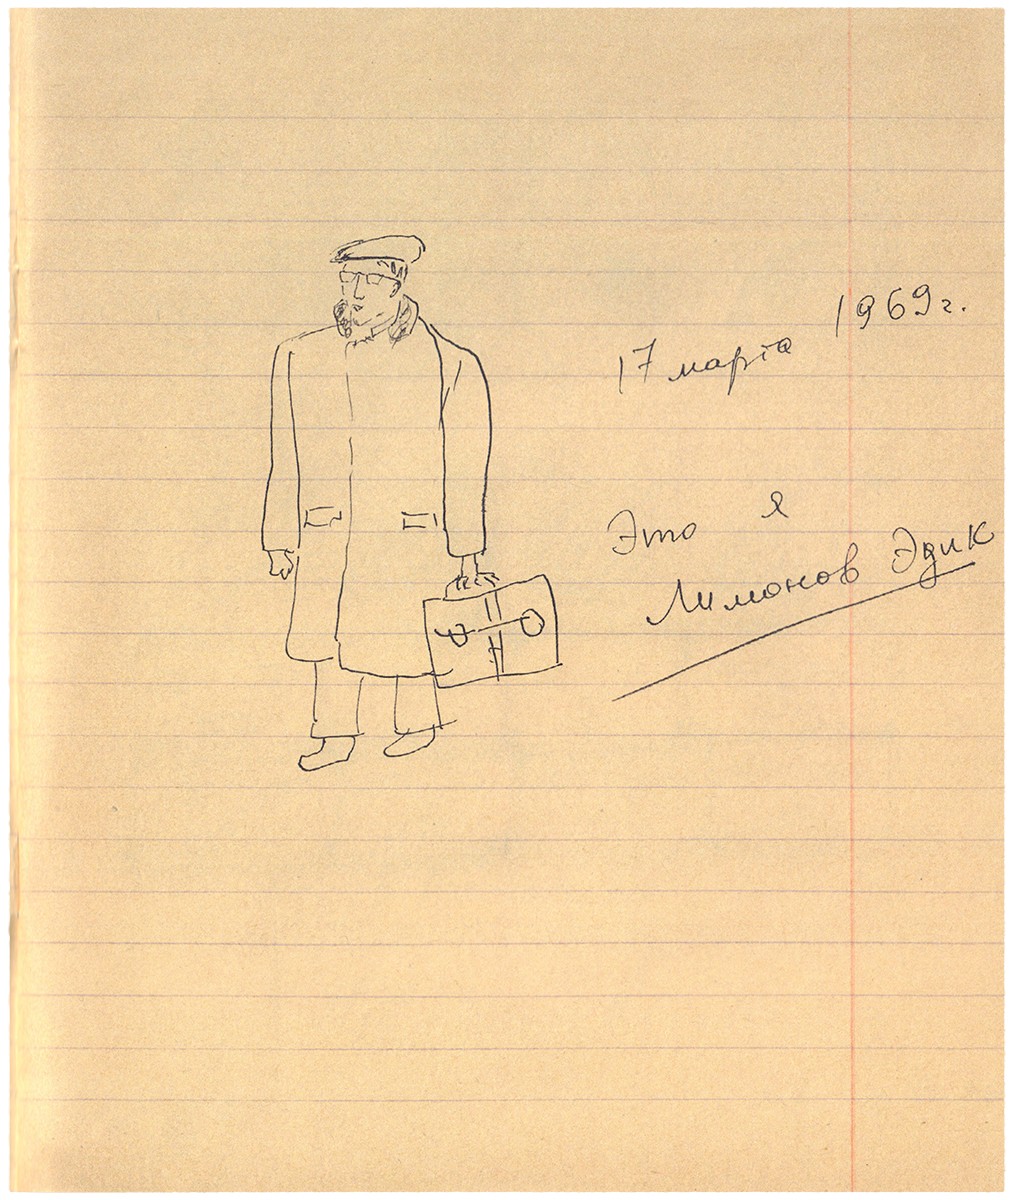 17 марта 1969г.
Это я
Лимонов Эдик